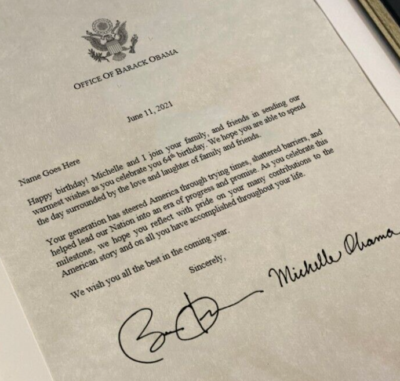 OFFICE OF BARACK OBAMA
June 11, 2021
Name Goes Here
Happy birthday! Michelle and I join your family, and friends in sending our
warmest wishes as you celebrate you 64th birthday. We hope you are able to spend
the day surrounded by the love and laughter of family and friends.
Your generation has steered America through trying times, shattered barriers, and
helped lead our Nation into an era of progress and promise. As you celebrate this
milestone, we hope you reflect with pride on your many contributions to the
American story and on all you have accomplished throughout your life.
We wish you all the best in the coming year.
Sincerely,
Michelle Obama